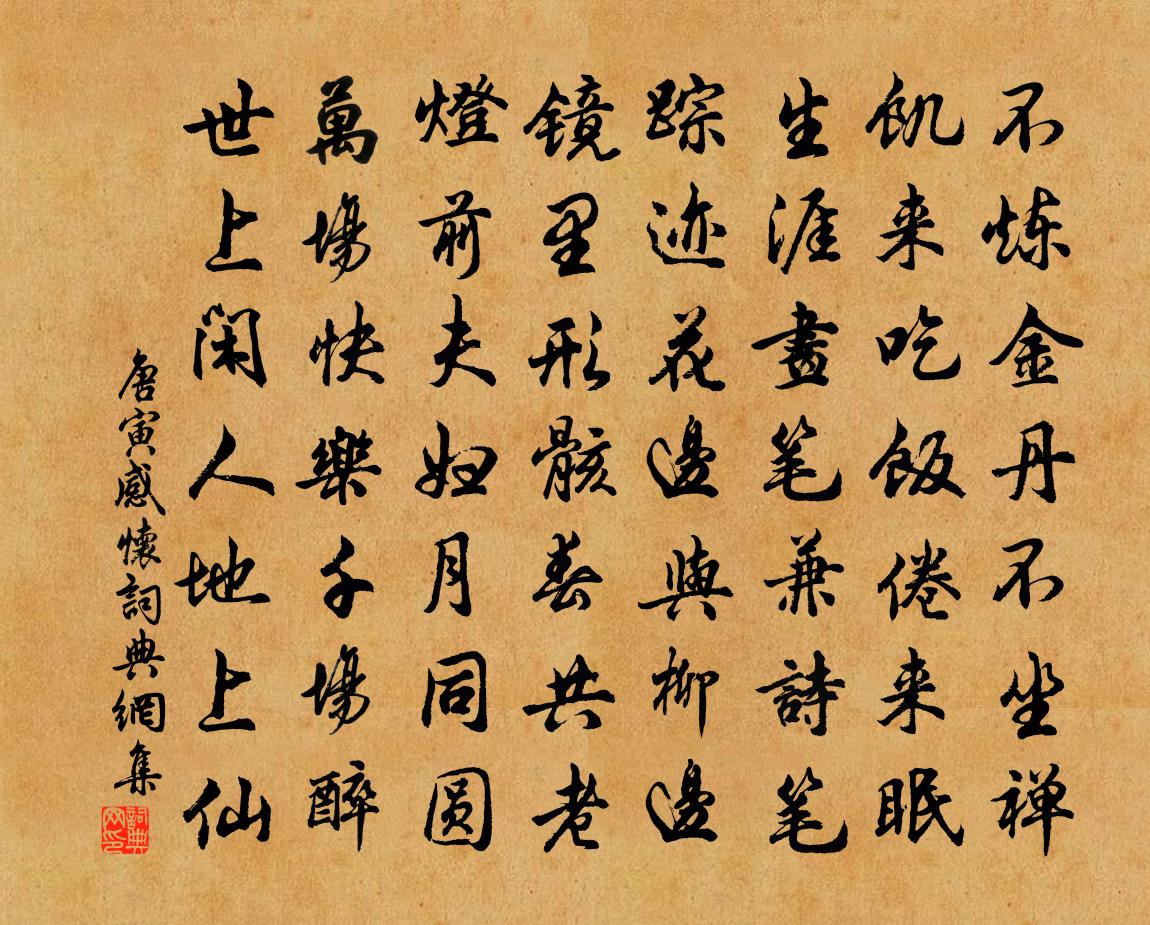 不炼金丹不坐禅
飢来吃飯倦来眠
生涯畫笔兼詩笔
踪迹花邊與柳邊
镜里形骸春共老
燈前夫妇月同圆
萬場快樂千場醉
世上闲人地上仙
唐寅感懷詞典網集
詞典
网印